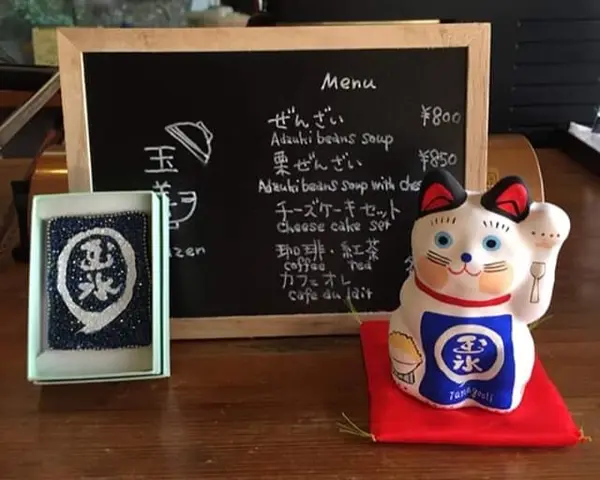 Menu
ぜんざい ¥800
Adzuki beans soup
栗ぜんざい ¥850
Adzuki beans soup with
チーズケーキセット
cheese cake set
珈琲・紅茶
coffee red
カフェオレ
cafe du lait
玉
zen
玉氷
玉氷